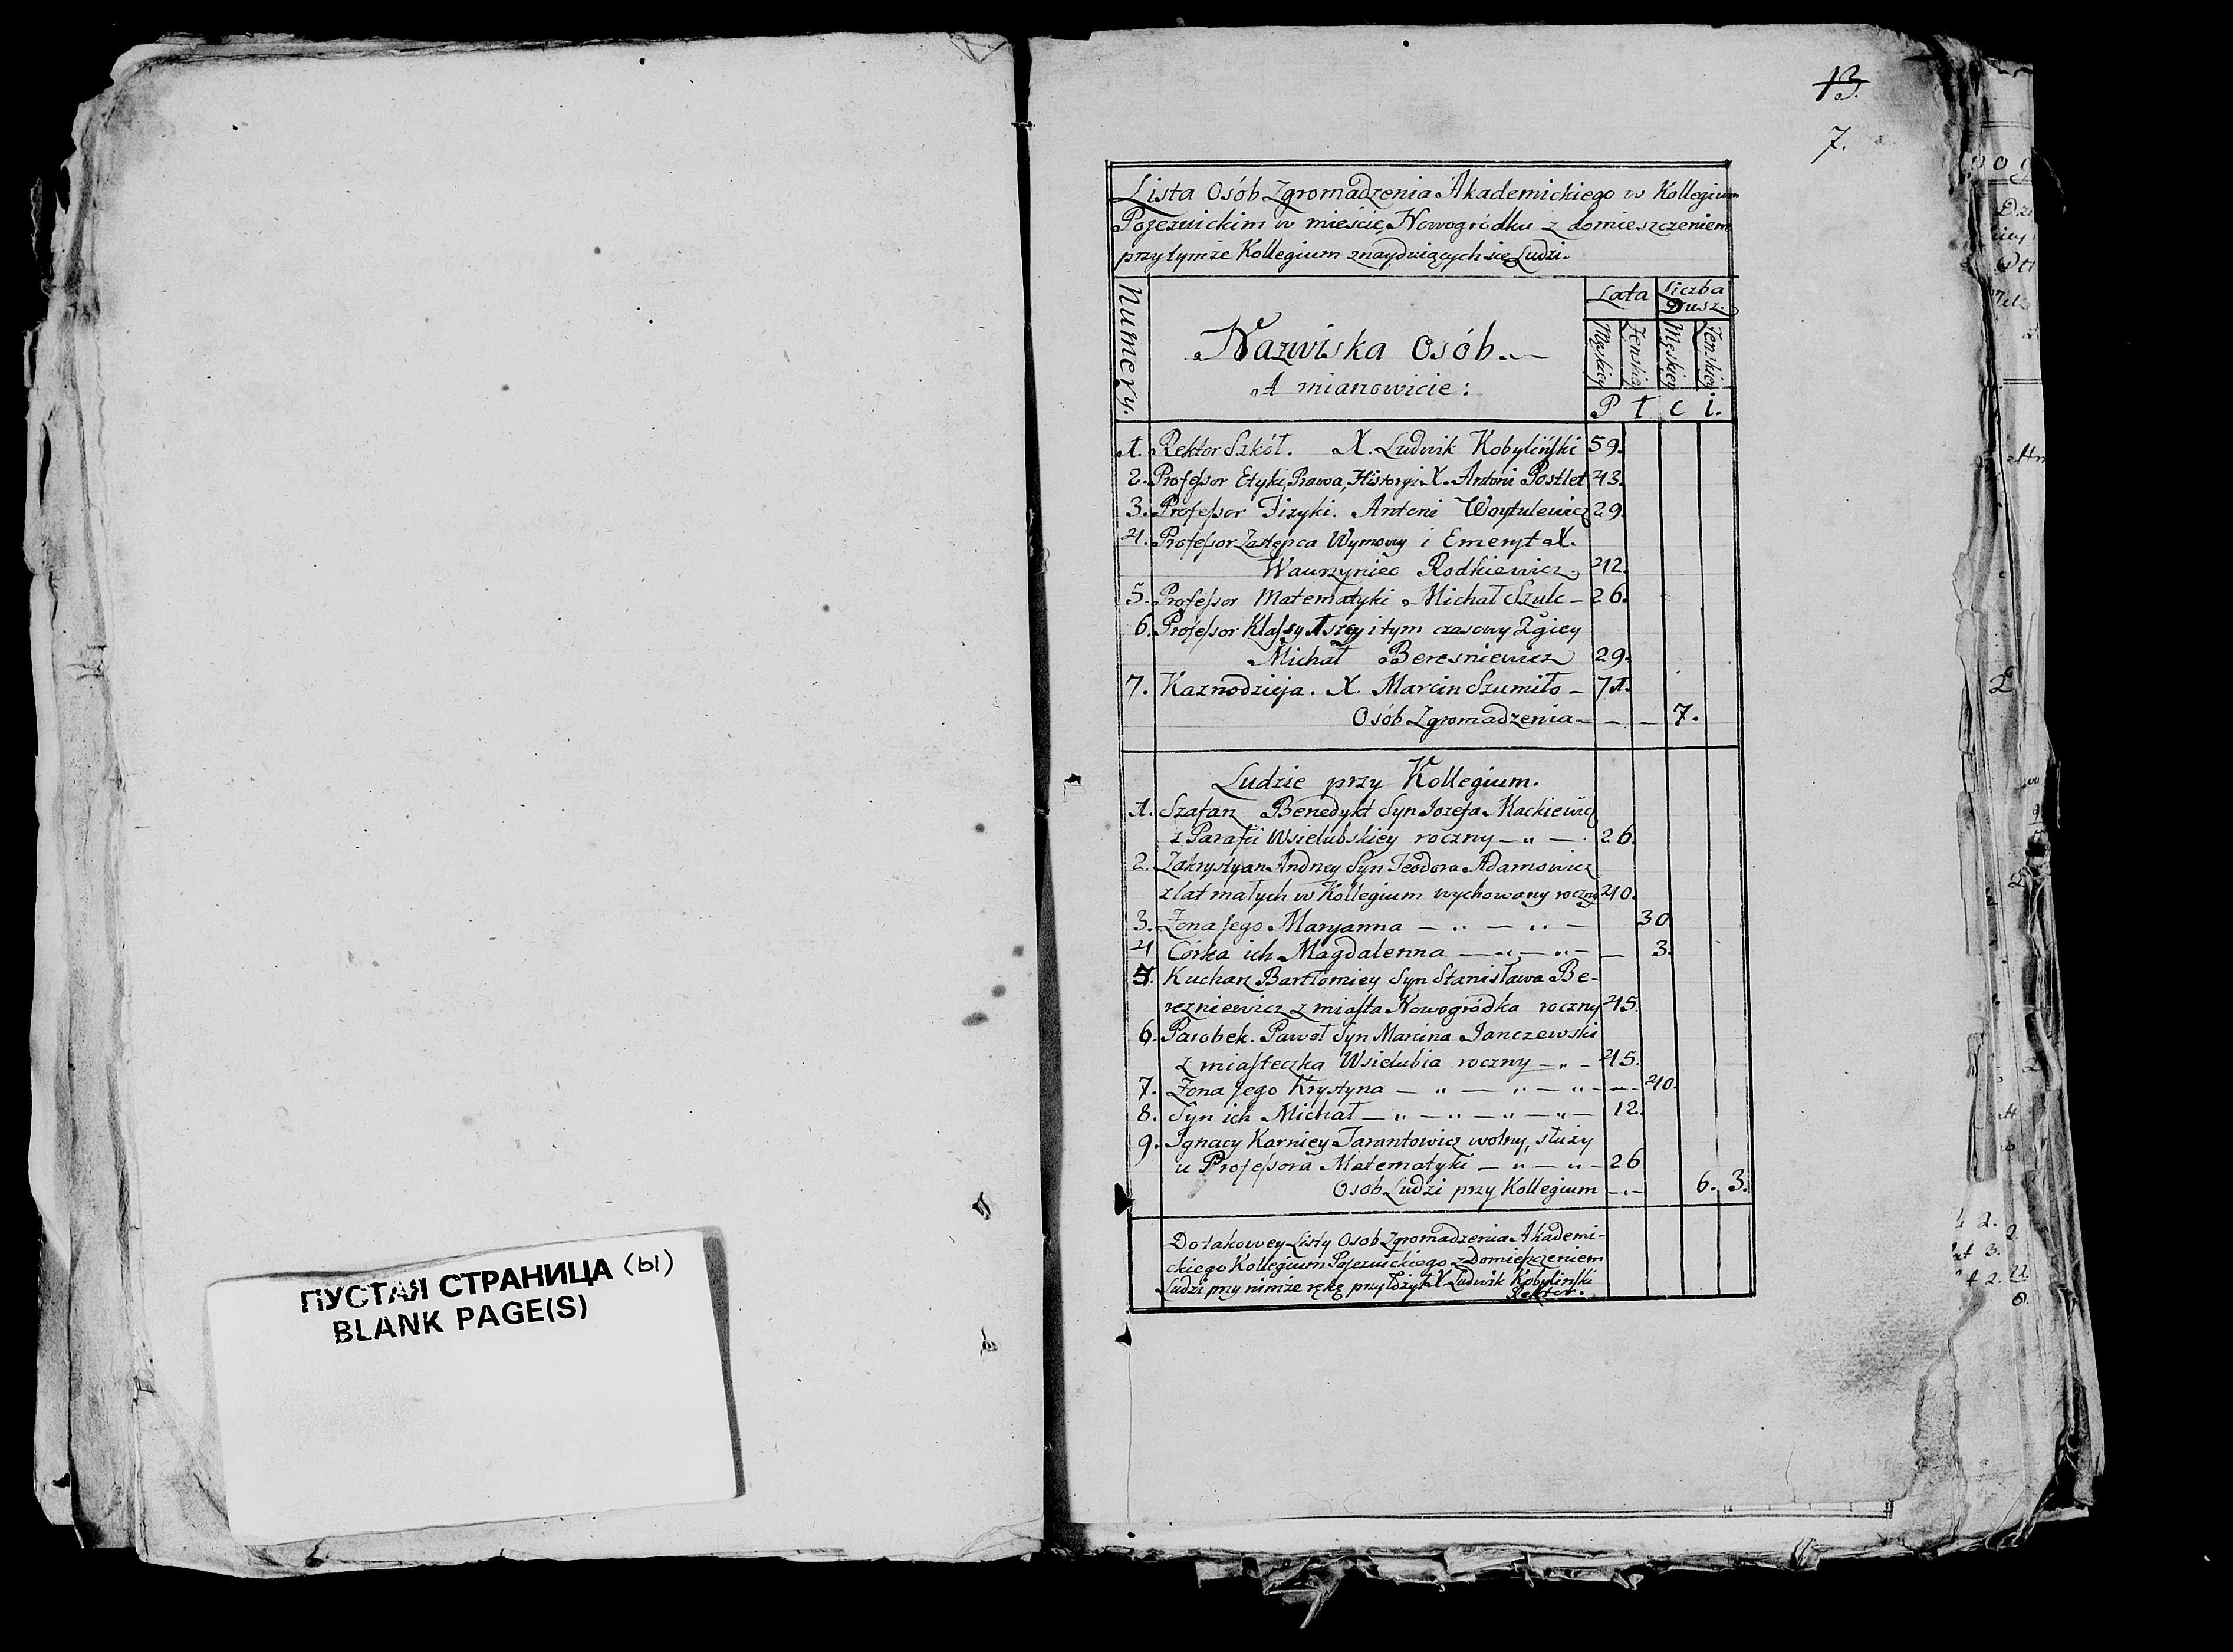 13.
7.
Lista Osób Zgromadzenia Akademickiego w Kollegium
Pojezuickim w mieście Nowogródku z domieszczeniem
przy tymże Kollegium znayduiących się Ludzi.
Numery.
Nazwiska Osób.
A mianowicie:
Lata Liczba Dusz.
Męskiey Żenskiey Męskiey Żenskiey
P ł c i.
1. Rektor Szkół. X. Ludwik Kobyliński 59.
2. Professor Etyki, Prawa, Historyi X. Antoni Postlet 43.
3. Professor Fizyki. Antoni Woytulewicz 29.
4. Professor Zastępca Wymowy i Emeryt X.
Wawrzyniec Rodkiewicz. 42.
5. Professor Matematyki Michał Szulc – 26.
6. Professor Klassy 1szey i tym czasowy 2giey
Michał Beresniewicz 29.
7. Kaznodzieja. X. Marcin Szumiło – 71.
Osób Zgromadzenia – – – 7.
Ludzie przy Kollegium.
1. Szafarz Benedykt Syn Jozefa Mackiewicz
z Parafii Wsielubskiey roczny – „ – 26.
2. Zakrystyan Andrzey Syn Teodora Adamowicz
z lat małych w Kollegium wychowany roczny 40.
3. Żona Jego Maryanna – „ – „ – 30.
4 Córka ich Magdalenna – „ – „ – – 3.
5. Kucharz Bartłomiey Syn Stanisława Be-
rezniewicz z miasta Nowogródka roczny 45.
6. Parobek. Paweł Syn Marcina Janczewski
z miasteczka Wsielubia roczny – „ – 45.
7. Żona Jego Krystyna – „ – „ – „ – „ – 40.
8. Syn ich Michał – „ – „ – „ – „ – 12.
9. Ignacy Karniey Tarantowicz wolny, służy
u Professora Matematyki – „ – „ – 26
Osob Ludzi przy Kollegium – . – 6. 3.
Do takowey Listy Osob Zgromadzenia Akademi-
ckiego Kollegium Pojezuickiego z Domieszczeniem
Ludzi przy nimże rękę przyłożył X Ludwik Kobyliński
Rektor.
ПУСТАЯ СТРАНИЦА (ы)
BLANK PAGE(S)